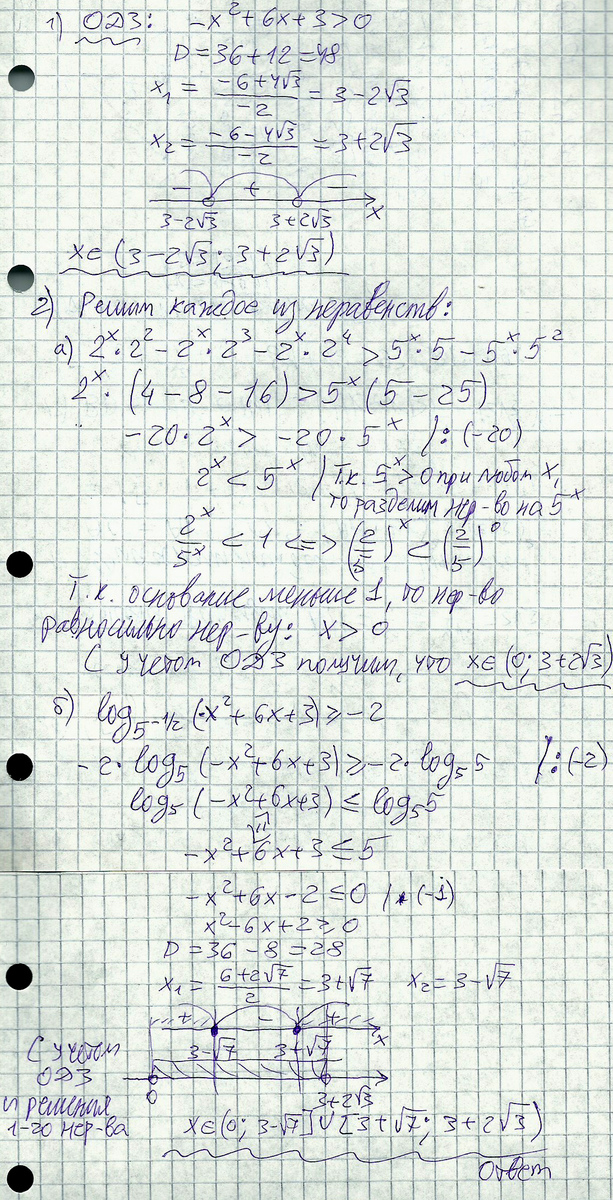 1) ОДЗ: -x²+6x+3>0
D=36+12=48
x₁ = (-6+4√3)/(-2) = 3-2√3
x₂ = (-6-4√3)/(-2) = 3+2√3
- + -
3-2√3 3+2√3 x
x∈(3-2√3; 3+2√3)
2) Решим каждое из неравенств:
а) 2ˣ·2²-2ˣ·2³-2ˣ·2⁴>5ˣ·5-5ˣ·5²
2ˣ·(4-8-16)>5ˣ(5-25)
-20·2ˣ>-20·5ˣ /:(-20)
2ˣ<5ˣ / Т.к. 5ˣ>0 при любом x,
то разделим нер-во на 5ˣ
2ˣ/5ˣ<1 <=> (2/5)ˣ<(2/5)⁰
Т.к. основание меньше 1, то нер-во
равносильно нер-ву: x>0
С учетом ОДЗ получим, что x∈(0; 3+2√3)
б) log₅-1/2(-x²+6x+3)≥-2
-2·log₅(-x²+6x+3)≥-2·log₅5 /:(-2)
log₅(-x²+6x+3)≤log₅5
-x²+6x+3≤5
-x²+6x-2≤0 /·(-1)
x²-6x+2≥0
D=36-8=28
x₁=(6+2√7)/2=3+√7 x₂=3-√7
+ - +
3-√7 3+√7 x
С учетом
ОДЗ
и решения
1-го нер-ва
0 3+2√3
x∈(0; 3-√7]∪[3+√7; 3+2√3)
Ответ